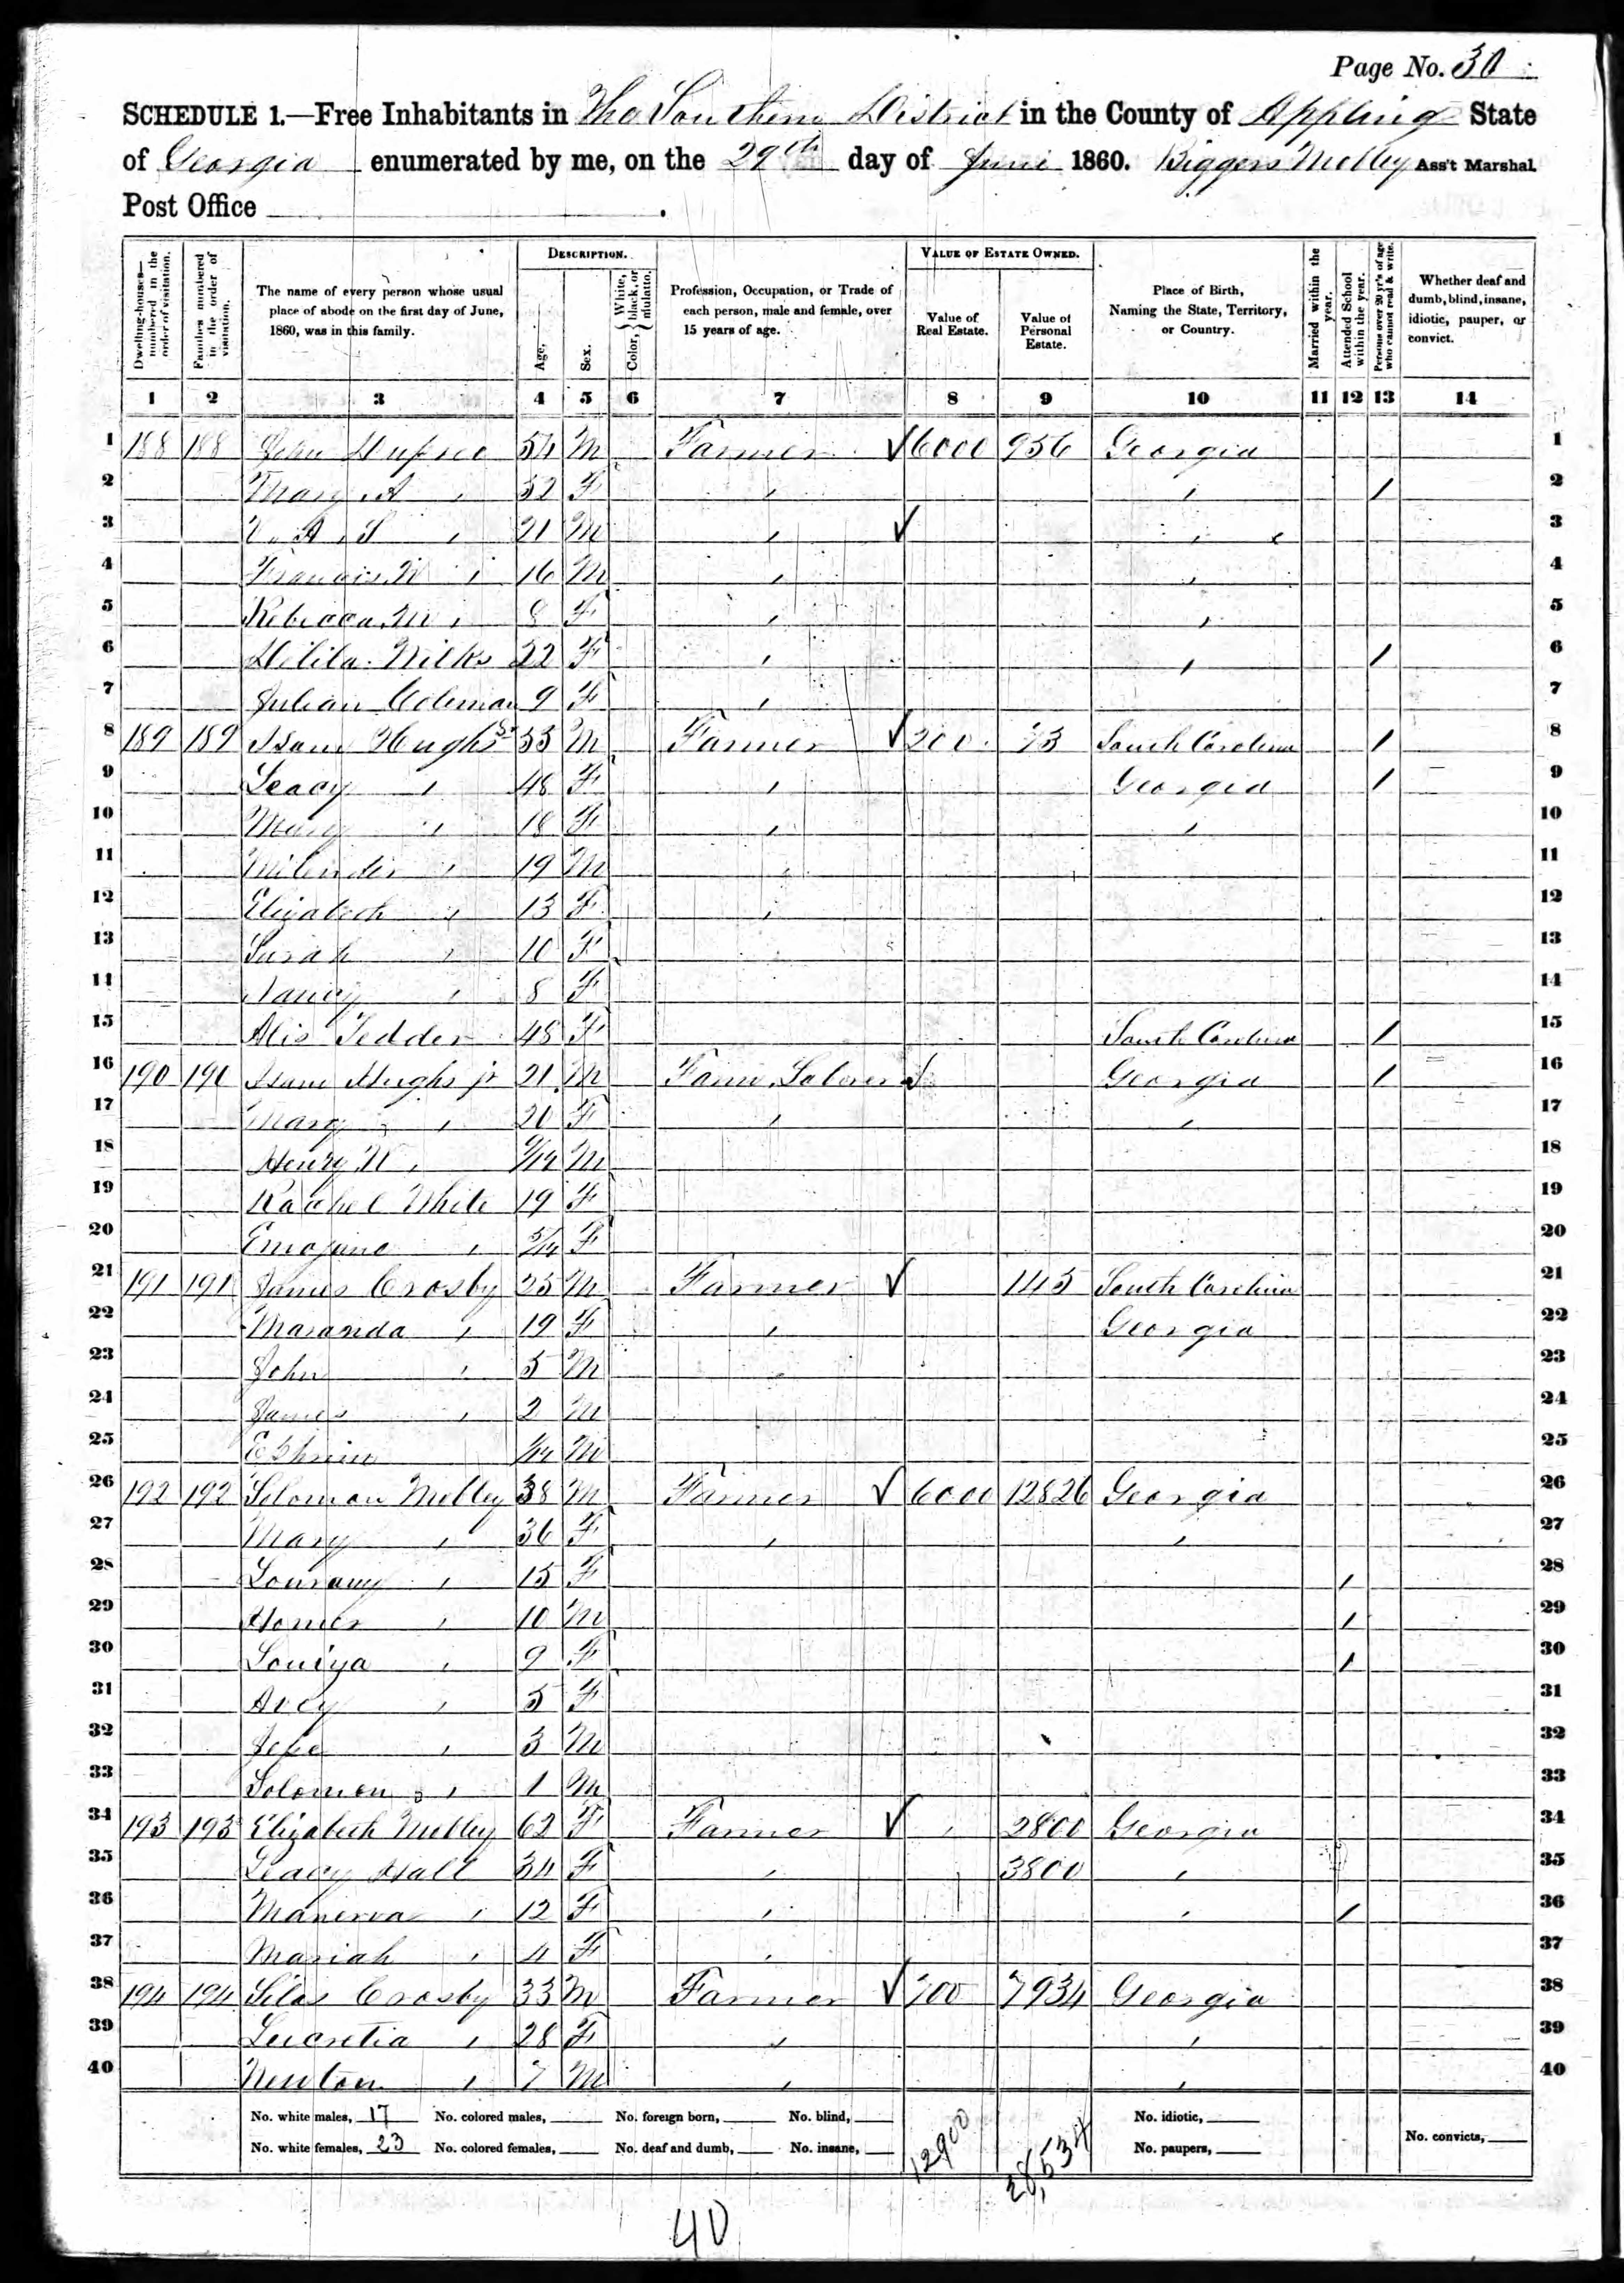 Page No. 30
SCHEDULE 1.—Free Inhabitants in The Southern District in the County of Appling State
of Georgia enumerated by me, on the 29th day of June 1860. Biggers Ass't Marshal.
Post Office
DESCRIPTION. VALUE OF ESTATE OWNED.
Dwelling-houses—numbered in the order of visitation.
Families numbered in the order of visitation.
The name of every person whose usual place of abode on the first day of June, 1860, was in this family.
Age.
Sex.
Color, White, black, or mulatto.
Profession, Occupation, or Trade of each person, male and female, over 15 years of age.
Value of Real Estate.
Value of Personal Estate.
Place of Birth, Naming the State, Territory, or Country.
Married within the year.
Attended School within the year.
Persons over 20 yr's of age who cannot read & write.
Whether deaf and dumb, blind, insane, idiotic, pauper, or convict.
1 2 3 4 5 6 7 8 9 10 11 12 13 14
1 188 188 John Dupree 54 M Farmer 6000 956 Georgia 1
2 Mary A " 32 F " " / 2
3 A S " 21 M " " 3
4 Francis " 16 M " " 4
5 Rebecca M " 8 F " " 5
6 22 F " " / 6
7 Julian Coleman 9 F " 7
8 189 189 Isam Hughs Sr 53 M Farmer 200 73 South Carolina / 8
9 Leacy " 48 F " Georgia / 9
10 Mary " 18 F " " 10
11 " 19 M " 11
12 Elizabeth " 13 F " 12
13 Sarah " 10 F 13
14 Nancy " 8 F 14
15 Tedder 48 F South Carolina / 15
16 190 190 Isam Hughs jr 21 M Farm Laborer Georgia / 16
17 Mary " 20 F " " 17
18 Henry W " M 18
19 Rachel White 19 F 19
20 " F 20
21 191 191 James Crosby 25 M Farmer 145 South Carolina 21
22 Maranda " 19 F " Georgia 22
23 John " 5 M " 23
24 James " 2 M 24
25 M 25
26 192 192 Solomon 38 M Farmer 6000 12826 Georgia 26
27 Mary " 36 F " " 27
28 " 15 F / 28
29 Homer " 10 M / 29
30 Louiza " 9 F / 30
31 Avey " 5 F 31
32 " 3 M 32
33 Solomon " 1 M 33
34 193 193 Elizabeth 62 F Farmer 2800 Georgia 34
35 Leacy Hall 34 F " 3800 " 35
36 Manerva " 12 F " " / 36
37 Mariah " 4 F " 37
38 194 194 Silas Crosby 33 M Farmer 700 7934 Georgia 38
39 Lucretia " 28 F " " 39
40 Newton " 7 M " " 40
No. white males, 17 No. colored males, No. foreign born, No. blind, No. idiotic,
No. white females, 23 No. colored females, No. deaf and dumb, No. insane, No. paupers, No. convicts,
12900 28,534
40